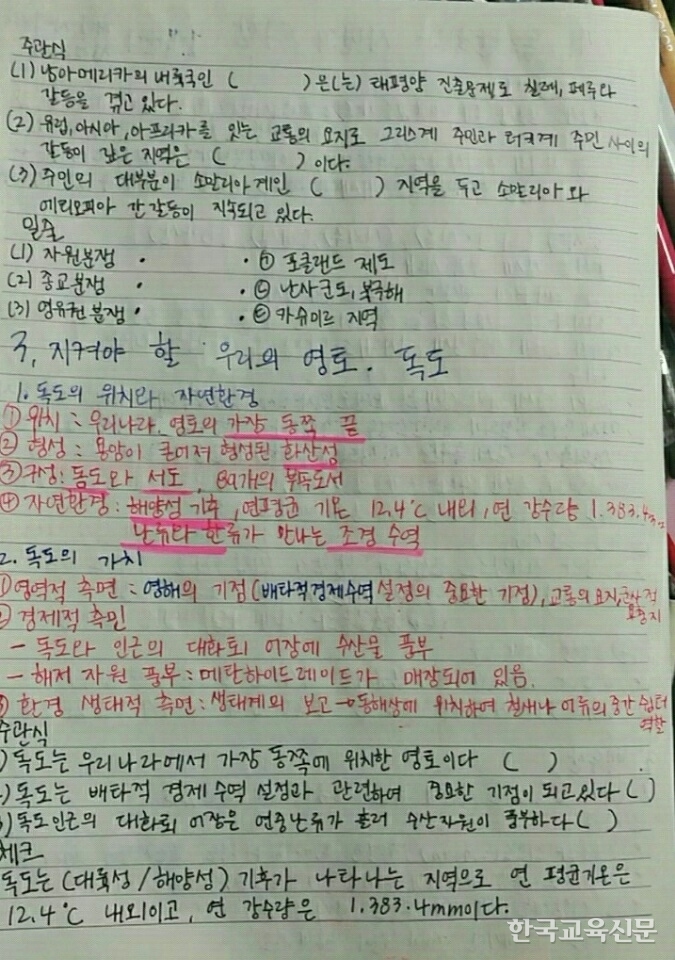 주관식
(1) 남아메리카의 내륙국인 (        )은(는) 태평양 진출문제로 칠레, 페루와
갈등을 겪고 있다.
(2) 유럽, 아시아, 아프리카를 잇는 교통의 요지로 그리스계 주민과 터키계 주민 사이의
갈등이 깊은 지역은 (        )이다.
(3) 주민의 대부분이 소말리아계인 (      ) 지역을 두고 소말리아와
에티오피아 간 갈등이 지속되고 있다.
(1) 자원분쟁 • • ㉠ 포클랜드 제도
(2) 종교분쟁 • • ㉡ 난사군도, 북극해
(3) 영유권 분쟁 • • ㉢ 카슈미르 지역
3. 지켜야 할 우리의 영토. 독도
1. 독도의 위치와 자연환경
① 위치 : 우리나라 영토의 가장 동쪽 끝
② 형성 : 용암이 굳어져 형성된 화산섬
③ 구성: 동도와 서도, 89개의 부속도서
④ 자연환경 : 해양성 기후, 연평균 기온 12.4℃ 내외, 연 강수량 1.383.4
난류와 한류가 만나는 조경 수역
2. 독도의 가치
① 영역적 측면 : 영해의 기점(배타적경제수역 설정의 중요한 기점), 교통의 요지, 군사적
요충지
② 경제적 측면
- 독도와 인근의 대화퇴 어장에 수산물 풍부
- 해저 자원 풍부 : 메탄하이드레이트가 매장되어 있음
③ 환경 생태적 측면 : 생태계의 보고 → 동해상에 위치하여 철새나 어류의 중간 쉼터
역할
주관식
) 독도는 우리나라에서 가장 동쪽에 위치한 영토이다 (   )
) 독도는 배타적 경제 수역 설정과 관련하여 중요한 기점이 되고있다 ( )
) 독도인근의 대화퇴 어장은 연중난류가 흘러 수산자원이 풍부하다 (  )
체크
독도는 (대륙성 / 해양성) 기후가 나타나는 지역으로 연 평균기온은
12.4℃ 내외이고, 연 강수량은 1.383.4mm이다.
한국교육신문